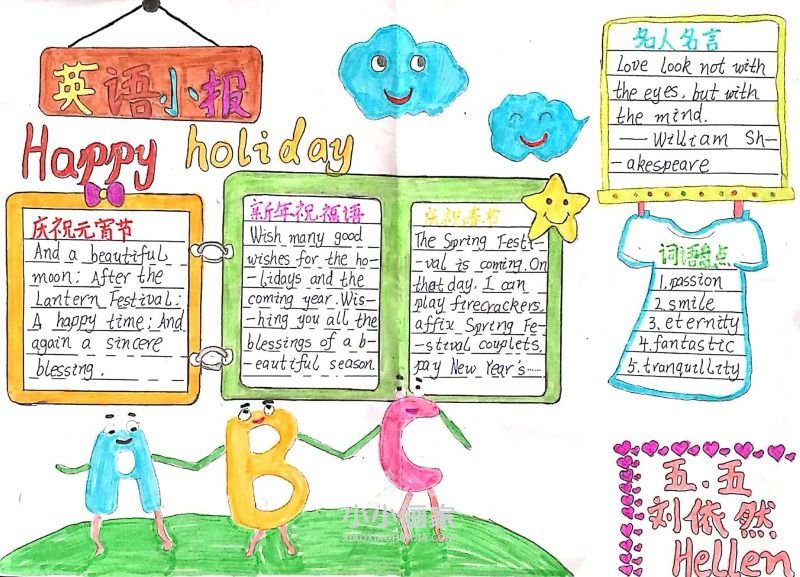 英语小报
Happy holiday
庆祝元宵节
And a beautiful
moon; After the
Lantern Festival:
A happy time; And
again a sincere
blessing.
新年祝福语
Wish many good
wishes for the ho-
-lidays and the
coming year. Wis-
-hing you all the
blessings of a b-
-eautiful season.
庆祝春节
The Spring Festi-
-val is coming. On
that day, I can
play firecrackers,
affix Spring Fe-
-stival couplets,
pay New Year's……
名人名言
Love look not with
the eyes, but with
the mind.
—— William Sh-
-akespeare
词语盘点
1. passion
2. smile
3. eternity
4. fantastic
5. tranquillity
A B C
五.五
刘依然
Hellen
小小画家
XIAOXIAOHUAJIA.COM